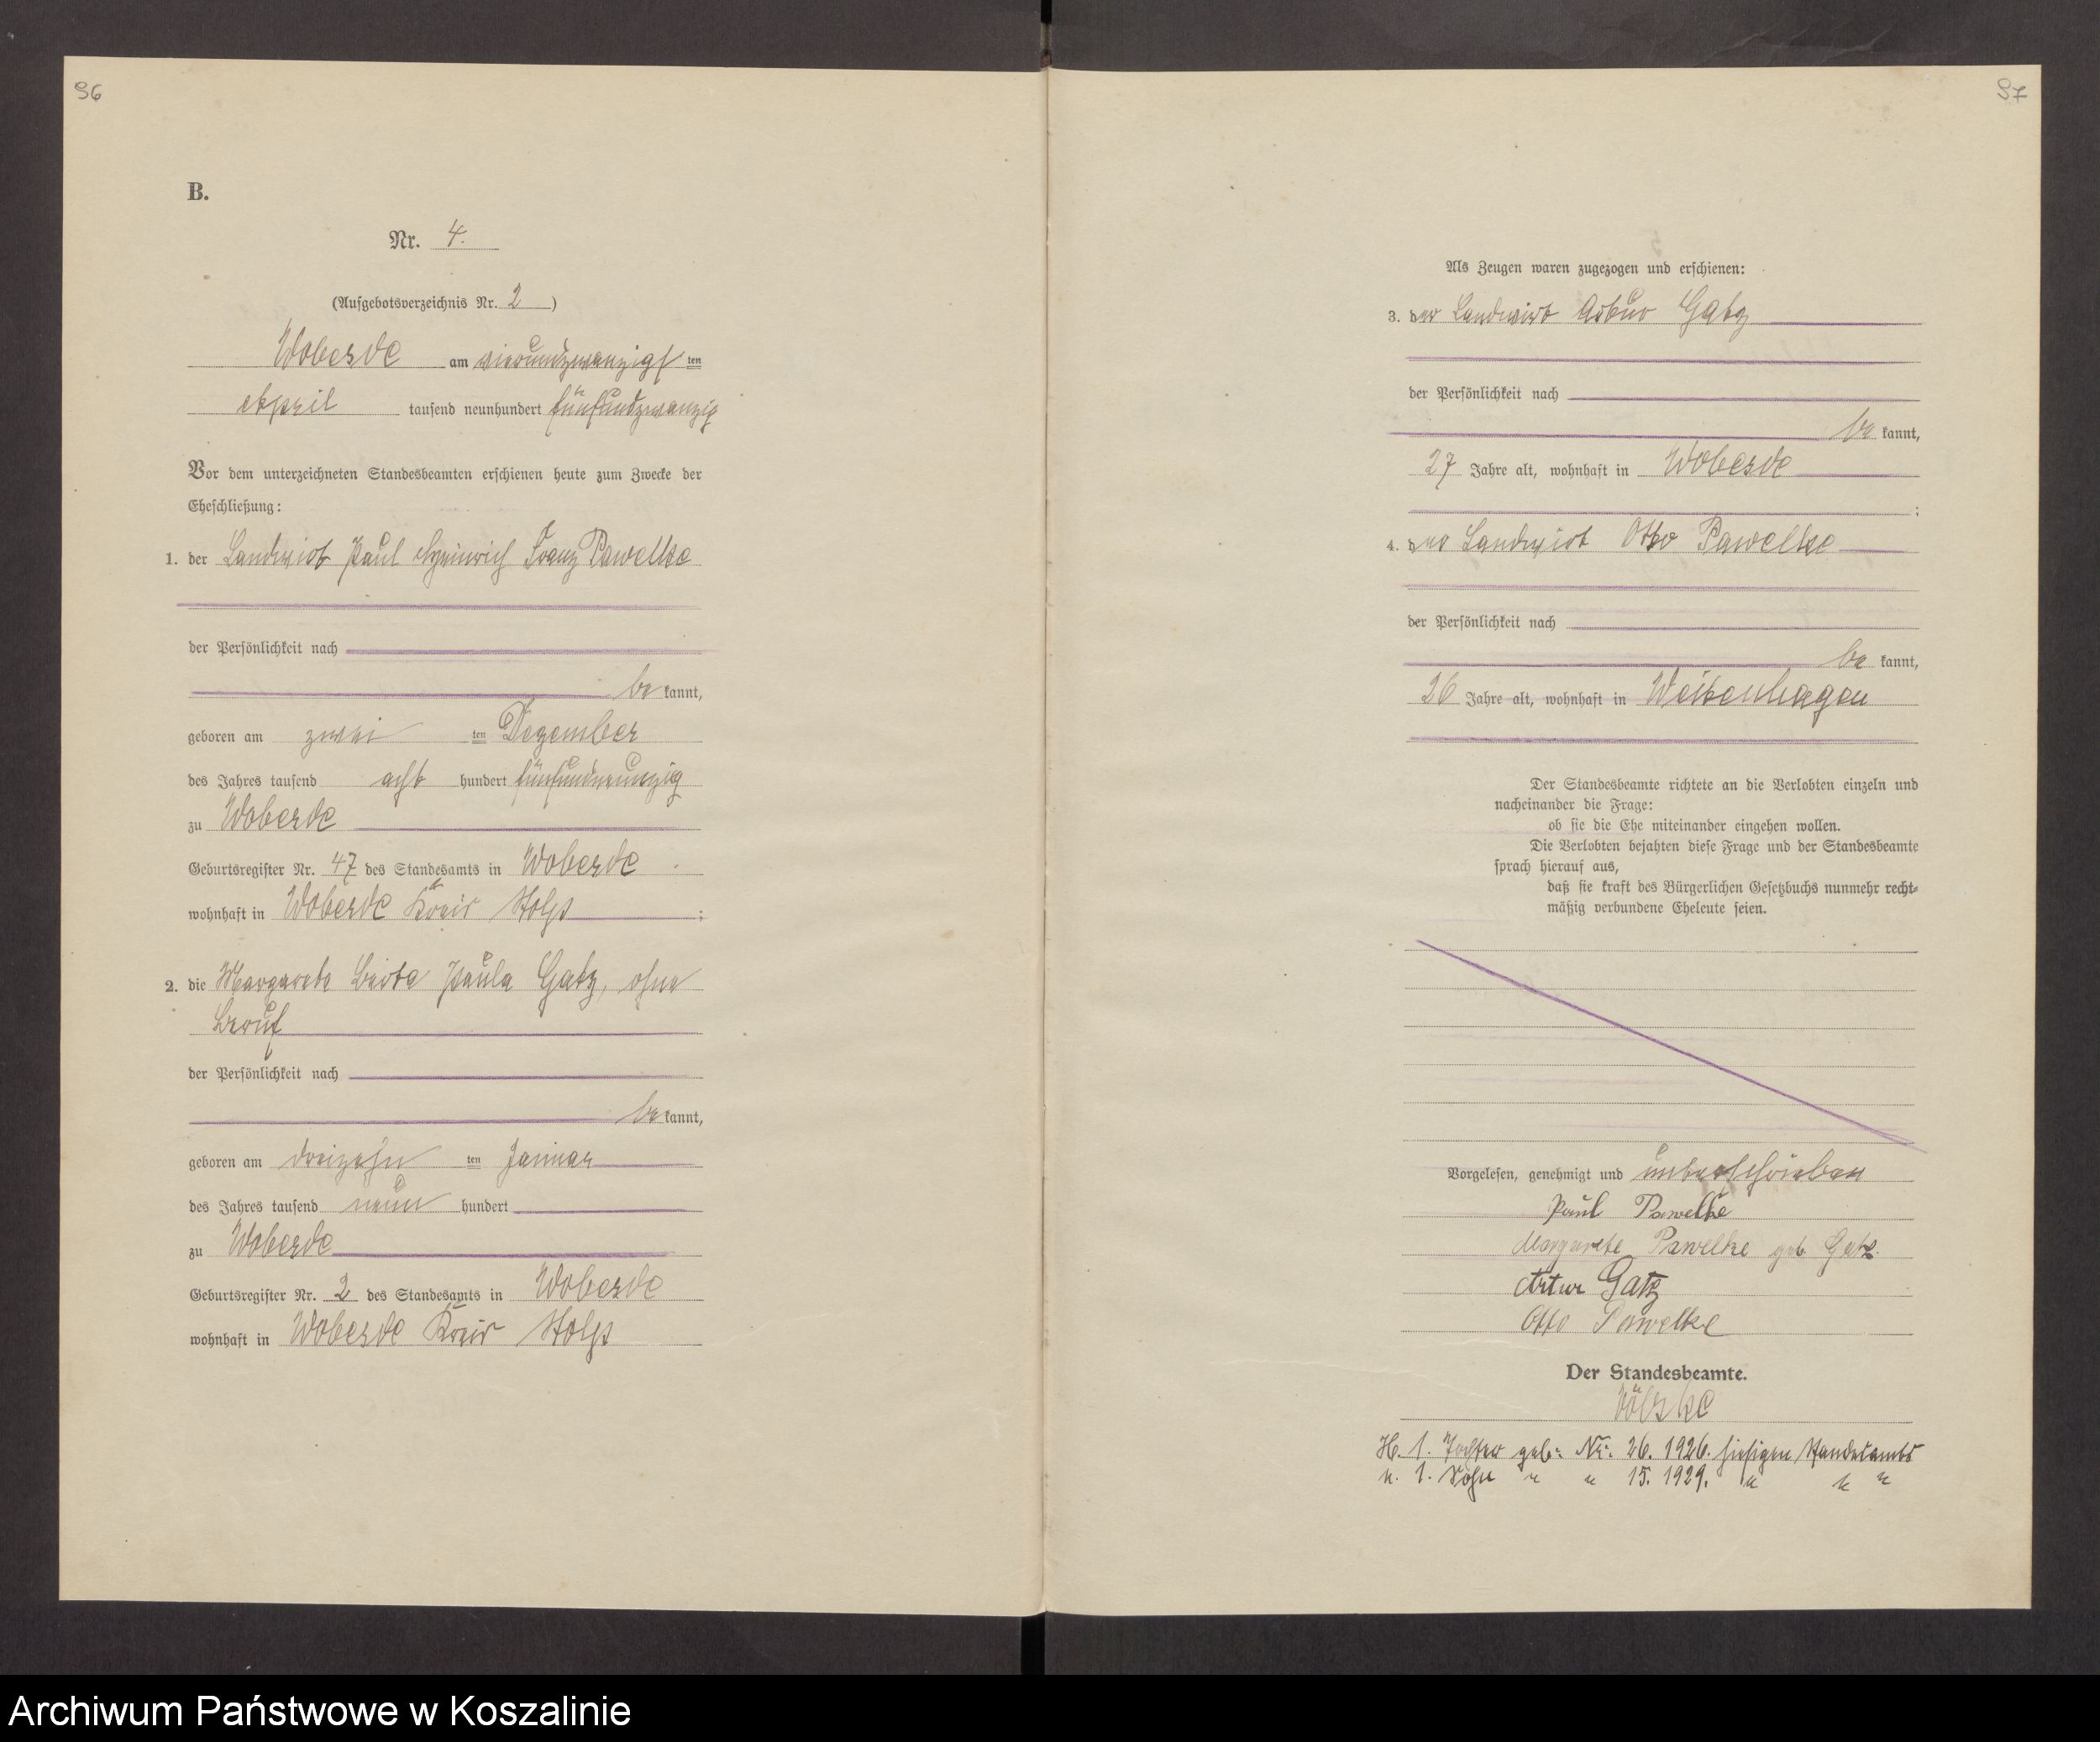 96
B.
Nr. 4.
(Aufgebotsverzeichnis Nr. 2)
Woberde am vierundzwanzigsten
April tausend neunhundert fünfundzwanzig
Vor dem unterzeichneten Standesbeamten erschienen heute zum Zwecke der
Eheschließung:
1. der Landwirt Paul Heinrich Franz Pawelke
der Persönlichkeit nach
be kannt,
geboren am zwei ten Dezember
des Jahres tausend acht hundert fünfundneunzig
zu Woberde
Geburtsregister Nr. 47 des Standesamts in Woberde
wohnhaft in Woberde Kreis Stolp ;
2. die Margarete Berta Paula Gatz, ohne
Beruf
der Persönlichkeit nach
be kannt,
geboren am dreizehn ten Januar
des Jahres tausend neun hundert
zu Woberde
Geburtsregister Nr. 2 des Standesamts in Woberde
wohnhaft in Woberde Kreis Stolp
97
Als Zeugen waren zugezogen und erschienen:
3. der Landwirt Artur Gatz
der Persönlichkeit nach
be kannt,
27 Jahre alt, wohnhaft in Woberde
;
4. der Landwirt Otto Pawelke
der Persönlichkeit nach
be kannt,
26 Jahre alt, wohnhaft in Weitenhagen
Der Standesbeamte richtete an die Verlobten einzeln und
nacheinander die Frage:
ob sie die Ehe miteinander eingehen wollen.
Die Verlobten bejahten diese Frage und der Standesbeamte
sprach hierauf aus,
daß sie kraft des Bürgerlichen Gesetzbuchs nunmehr recht-
mäßig verbundene Eheleute seien.
Vorgelesen, genehmigt und unterschrieben
Paul Pawelke
Margarete Pawelke geb. Gatz.
Artur Gatz
Otto Pawelke
Der Standesbeamte.
H. 1. Tochter geb: Nr. 26. 1926. hiesigen Standesamts
u. 1. Sohn " " 15. 1929. " " "
Archiwum Państwowe w Koszalinie